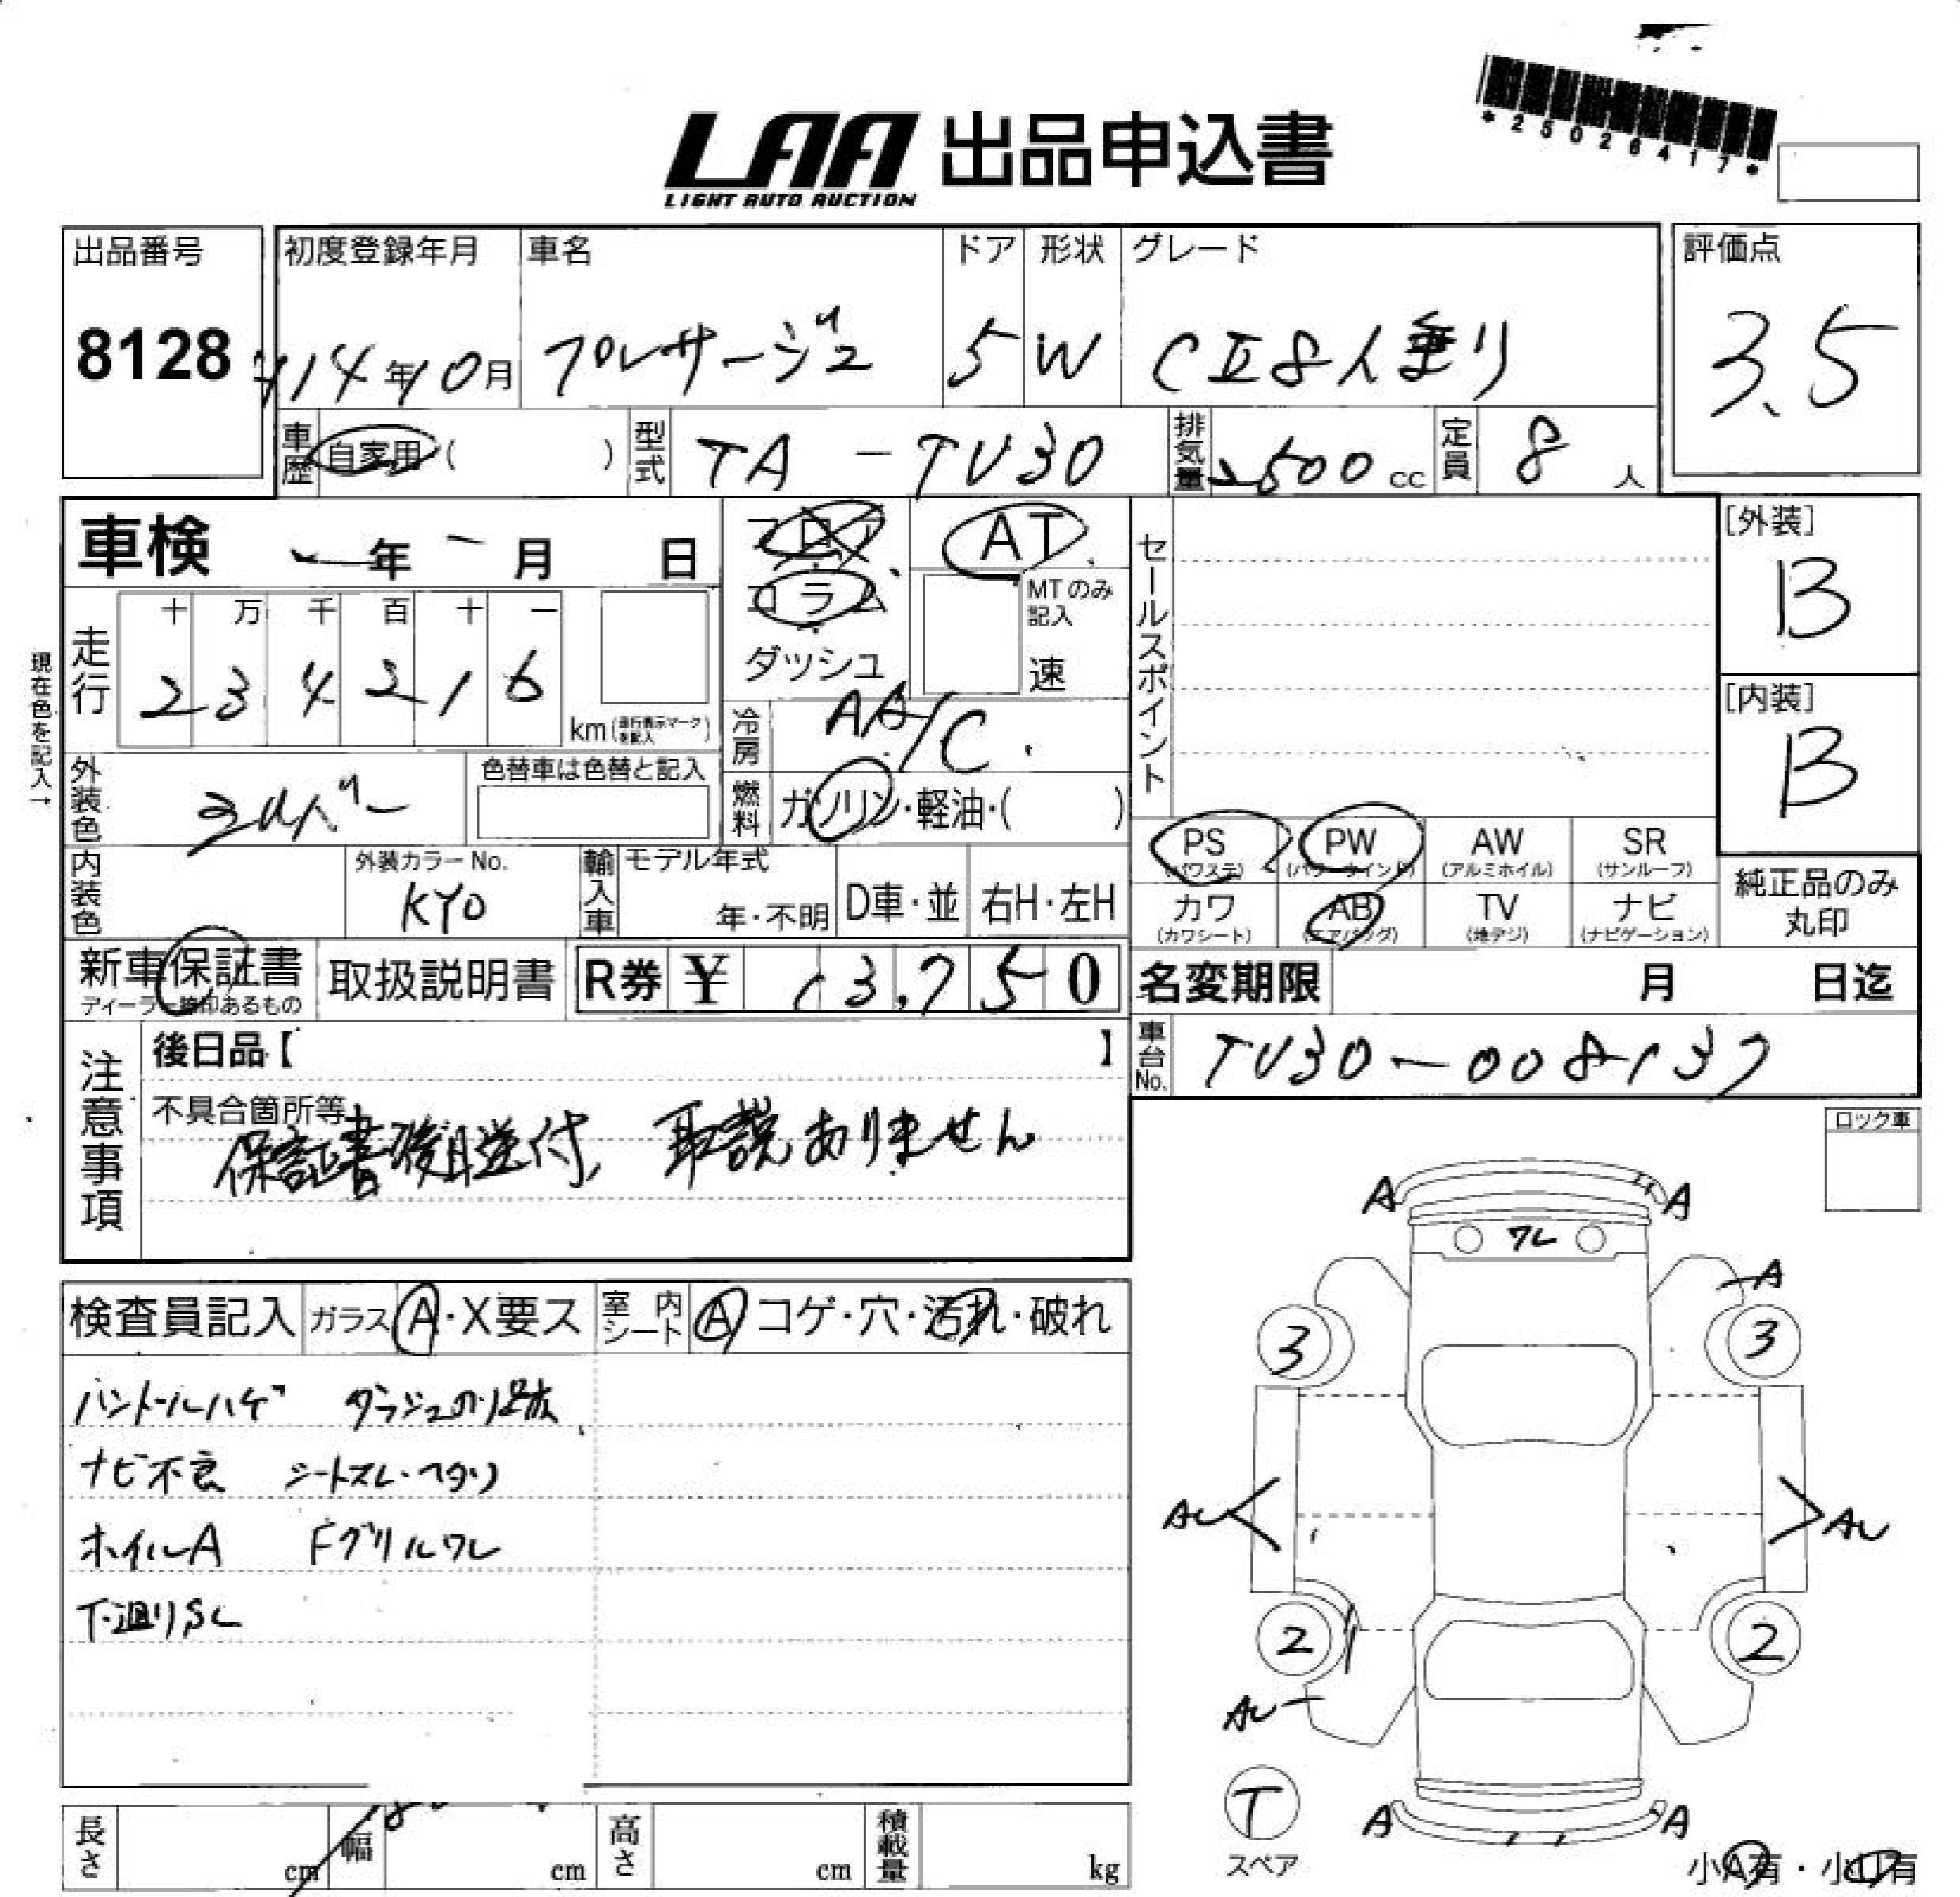 *25026417*
LAA 出品申込書
LIGHT AUTO AUCTION
出品番号 初度登録年月 車名 ドア 形状 グレード 評価点
8128 H14年10月 プレサージュ 5 W CⅡ8人乗り 3.5
車歴 自家用( ) 型式 TA-TU30 排気量 2500cc 定員 8人
車検 年 月 日 フロア AT セールスポイント [外装]
コラム MTのみ記入 B
走行 十 万 千 百 十 一 ダッシュ 速
2 3 4 2 1 6 km(走行表示マークを記入) [内装]
現在色を記入→
冷房 AA/C B
外装色 シルバー 色替車は色替と記入
燃料 ガソリン・軽油・( )
PS PW AW SR
(パワステ) (パワーウインド) (アルミホイル) (サンルーフ)
内装色 外装カラーNo. KY0 輸入車 モデル年式 年・不明 D車・並 右H・左H
カワ AB TV ナビ 純正品のみ丸印
(カワシート) (エアバッグ) (地デジ) (ナビゲーション)
新車保証書 取扱説明書 R券 ¥ 13,750 名変期限 月 日迄
車台No. TU30-008137
注意事項 後日品【 】
不具合箇所等
保証書後日送付、取説ありません
ロック車
検査員記入 ガラス A・X要ス 室内シート A コゲ・穴・汚れ・破れ
ハンドルハゲ ダッシュのり跡
ナビ不良 シートスレ・ヘタリ
ホイルA Fグリルワレ
下廻りSC
A A
ワレ
A
3 3
AU AU
2 2
AU
T
スペア
A A
小A有・小U有
長さ cm 幅 cm 高さ cm 積載量 kg